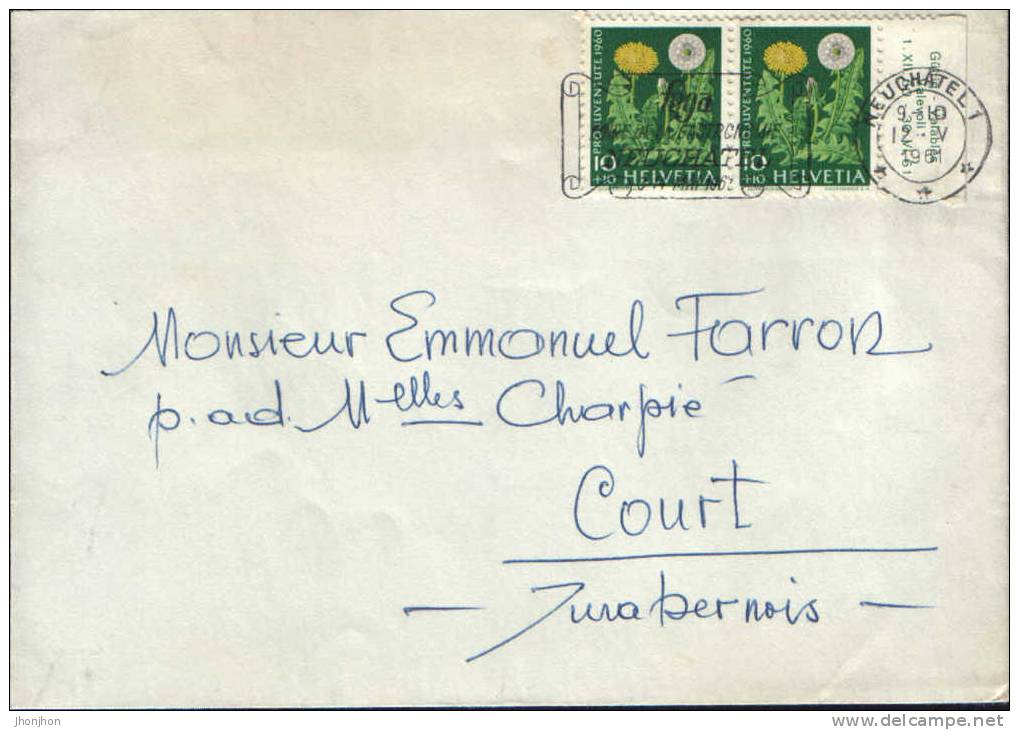 PRO JUVENTUTE 1960
10
+10 HELVETIA
PRO JUVENTUTE 1960
10
+10 HELVETIA
NEUCHÂTEL 1
9-10
12·V
1961
NEUCHATEL
Monsieur Emmanuel Farron
p.ad. Melles Charpié
Court
— Jura bernois —
jhonjhon
www.delcampe.net